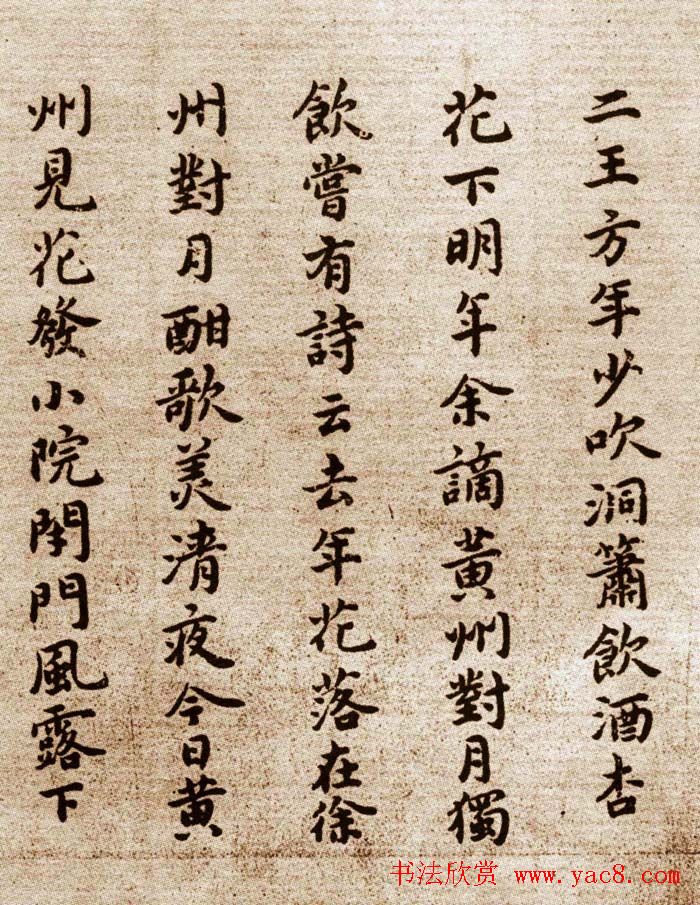 二王方年少吹洞簫飲酒杏
花下明年余謫黃州對月獨
飲嘗有詩云去年花落在徐
州對月酣歌美清夜今日黃
州見花發小院閉門風露下
书法欣赏 www.yac8.com